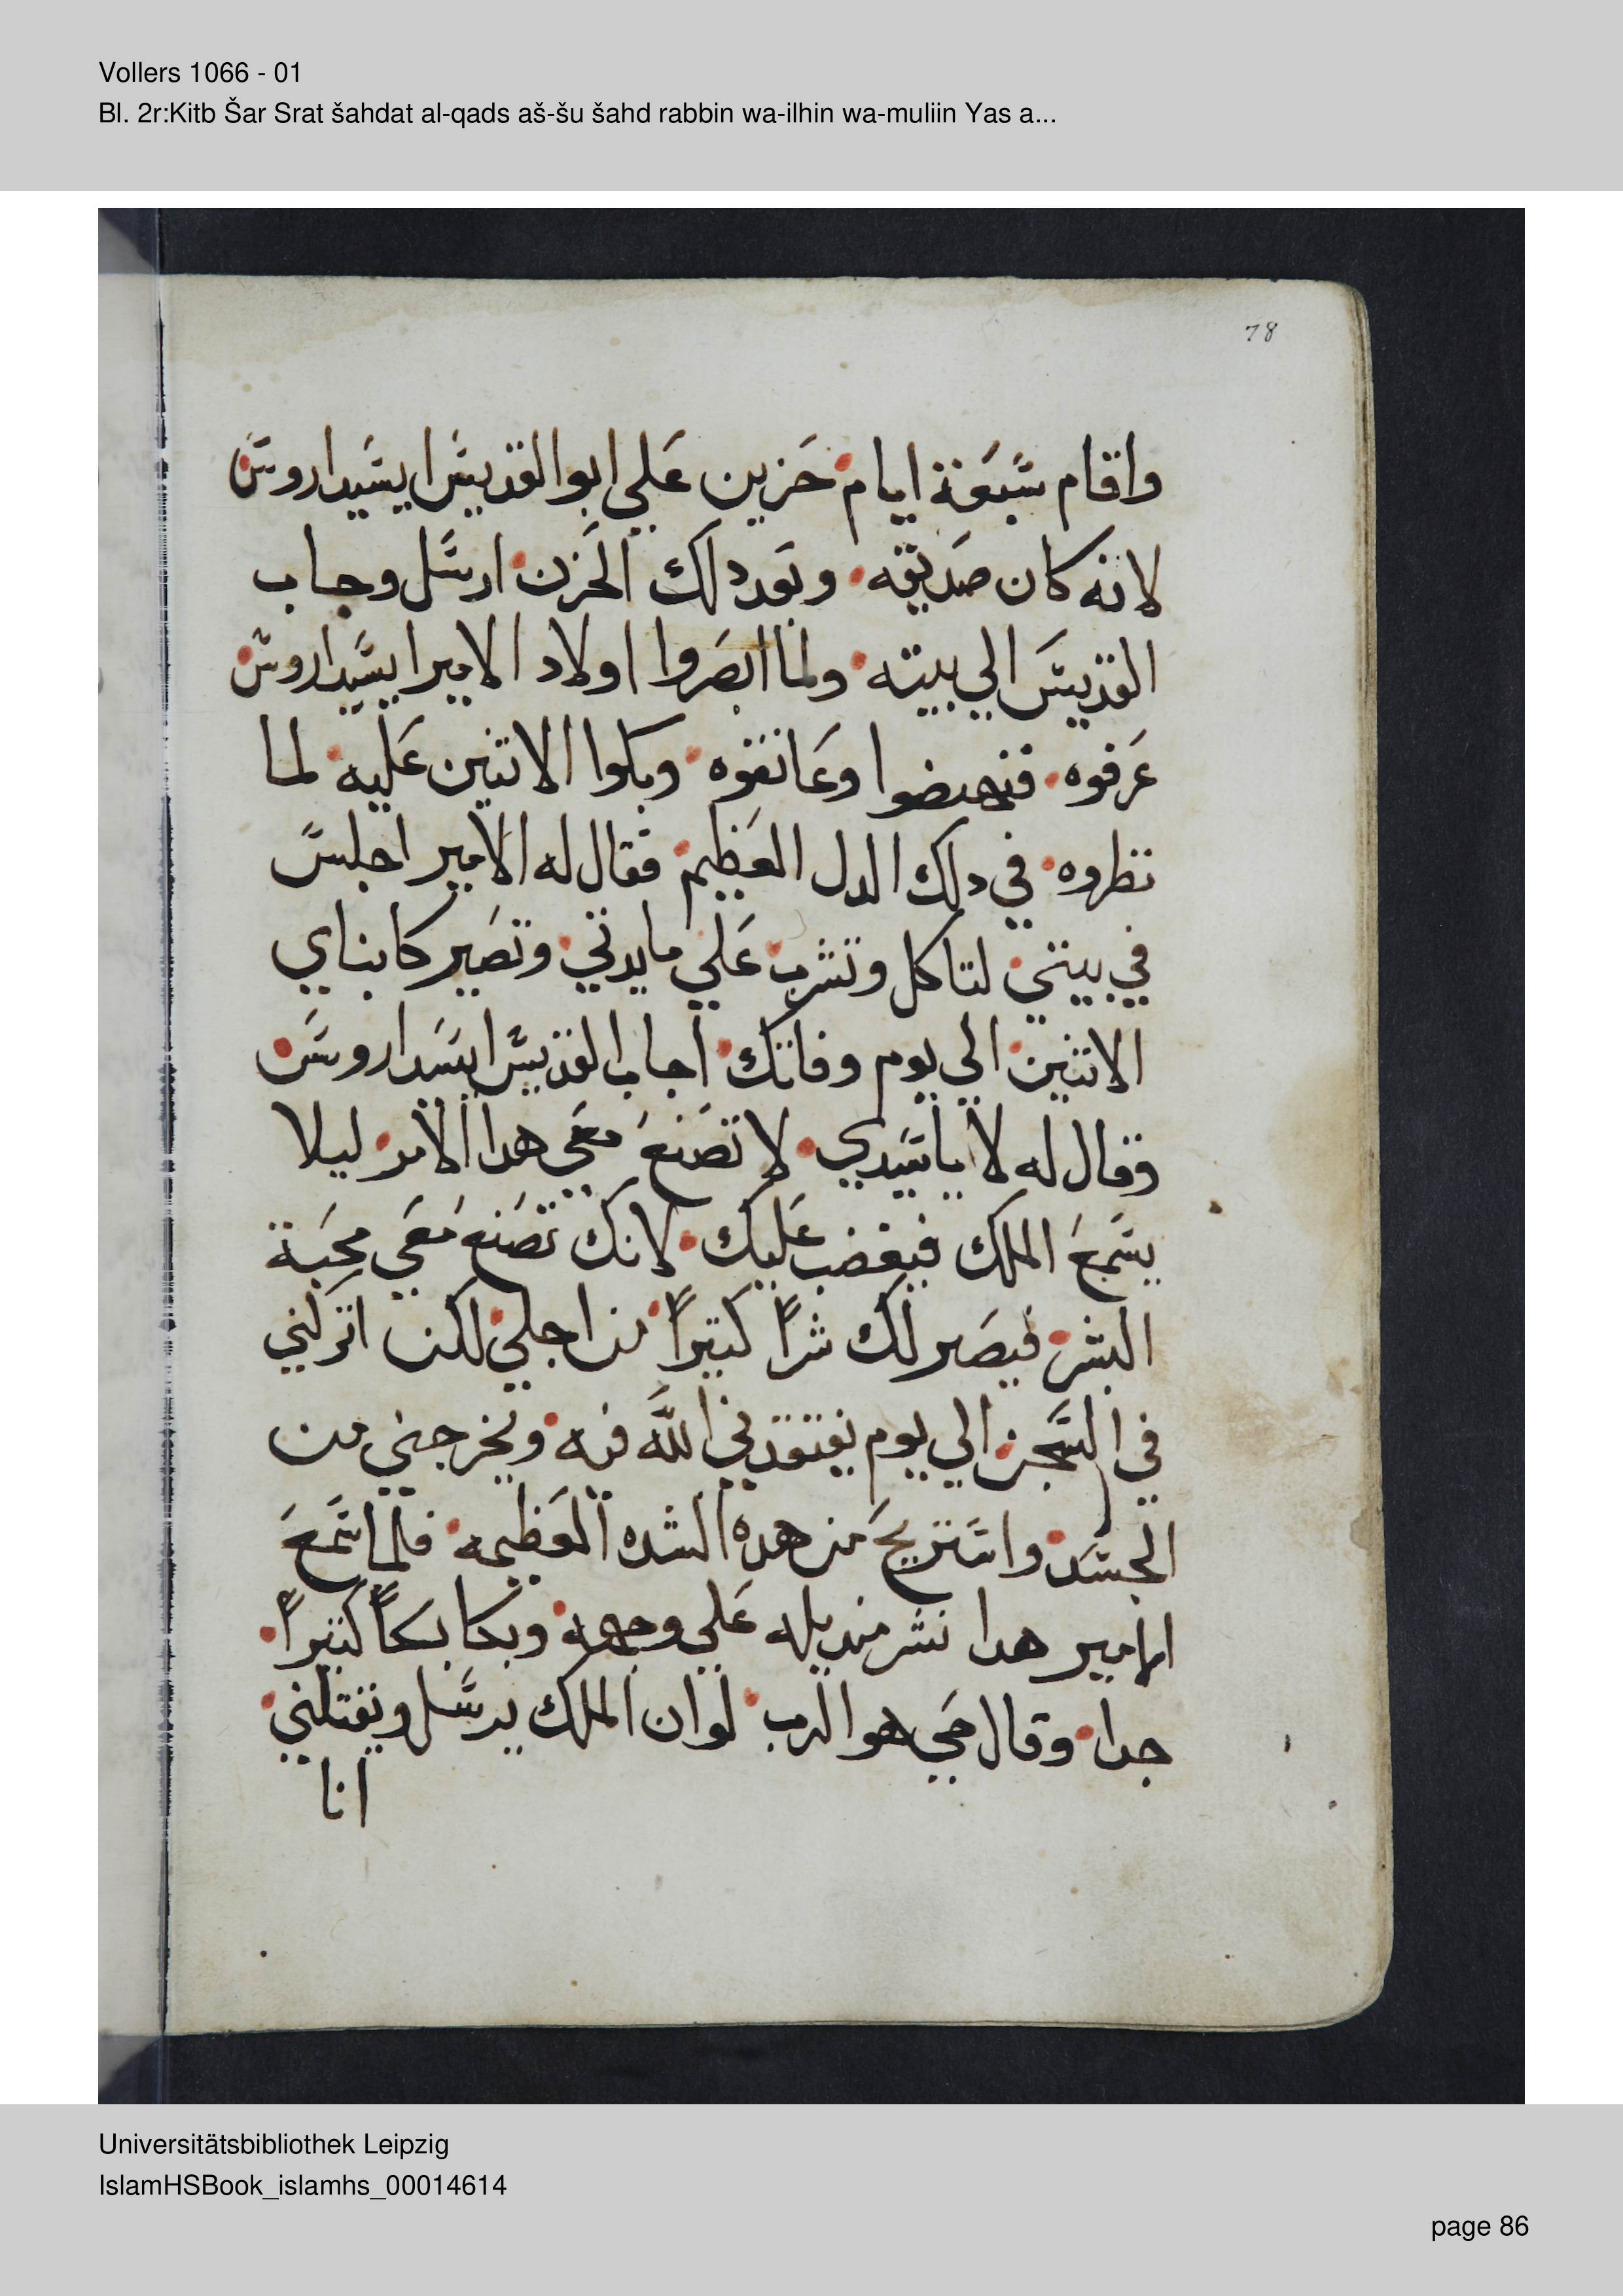 Vollers 1066 - 01
Bl. 2r:Kitb Šar Srat šahdat al-qads aš-šu šahd rabbin wa-ilhin wa-muliin Yas a...
78
واقام سبعة ايام حزين علي ابوا القديس ايسيداروس
لانه كان صديقه وبعد دلك الحزن ارسل وجاب
القديس الي بيته ولما ابصروا اولاد الامير ايسيداروس
عرفوه فنهضوا وعانقوه وبكوا الاتنين عليه لما
نظروه في دلك الدل العظيم فقال له الامير اجلس
في بيتي لتاكل وتشرب علي مايدتي وتصير كابناي
الاتنين الي يوم وفاتك اجاب القديس ايسداروس
وقال له لا ياسيدي لا تصنع معي هدا الامر ليلا
يسمع الملك فيغضب عليك لانك تصنع معي محبة
البشر فيصر لك شراً كتيراً من اجلي لكن اتركني
في السجن الي يوم يفتقدني اللّه فيه ويخرجني من
الجسد واستريح من هده الشده العظيمه فلما سمع
الامير هدا نشر منديله علي وجهه وبكا بكاً كتيراً
جدا وقال حي هو الرب لو ان الملك يرسل ويقتلني
انا
Universitätsbibliothek Leipzig
IslamHSBook_islamhs_00014614
page 86